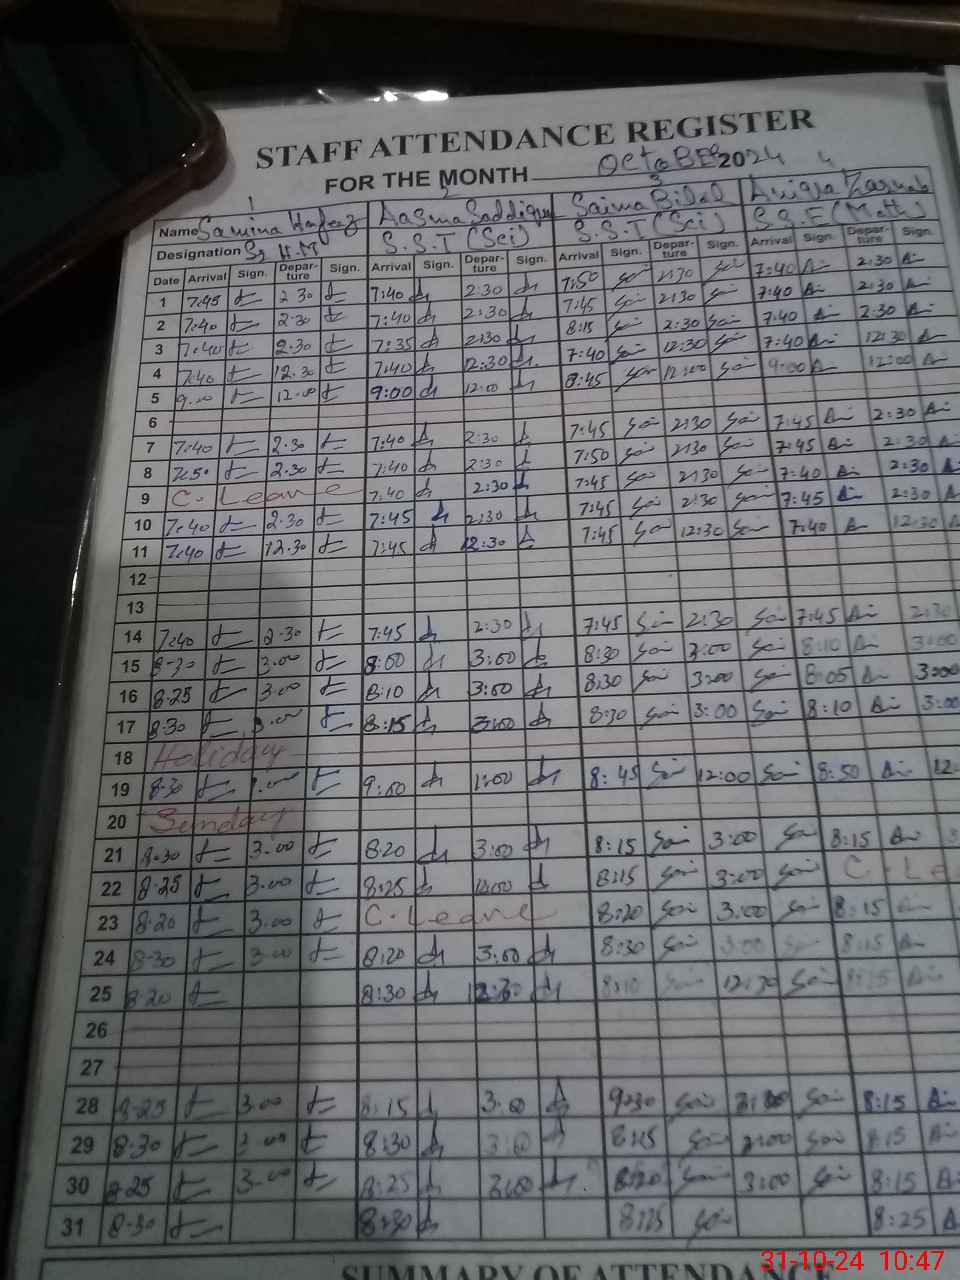 STAFF ATTENDANCE REGISTER
FOR THE MONTH OCtOBER 2024
1 2 3 4
Name Samina Hafeez Aasma Saddique Saima Bilal Aniqa Zarnab
Designation Sr H.M S.S.T (Sci) S.S.T (Sci) S.S.E (Math)
Date Arrival Sign. Depar-ture Sign. Arrival Sign. Depar-ture Sign. Arrival Sign. Depar-ture Sign. Arrival Sign. Depar-ture Sign.
1 7:45 2:30 7:40 2:30 7:50 2:30 7:40 2:30
2 7:40 2:30 7:40 2:30 7:45 2:30 7:40 2:30
3 7:40 2:30 7:35 2:30 8:15 2:30 7:40 2:30
4 7:40 12.30 7:40 12:30 7:40 12:30 7:40 12:30
5 9:00 12:00 9:00 12:00 8:45 12:00 9:00 12:00
6
7 7:40 2:30 7:40 2:30 7:45 2:30 7:45 2:30
8 7:50 2:30 7:40 2:30 7:50 2:30 7:45 2:30
9 C. Leave 7:40 2:30 7:45 2:30 7:40 2:30
10 7:40 2:30 7:45 2:30 7:45 2:30 7:45 2:30
11 7:40 12.30 7:45 12:30 7:45 12:30 7:40 12:30
12
13
14 7:40 2:30 7:45 2:30 7:45 2:30 7:45 2:30
15 8:30 3:00 8:00 3:00 8:30 3:00 8:10 3:00
16 8:25 3:00 8:10 3:00 8:30 3:00 8:05 3:00
17 8:30 3:00 8:15 3:00 8:30 3:00 8:10 3:00
18 Holiday
19 8:30 1:00 9:00 1:00 8:45 12:00 8:50 12:
20 Sunday
21 8:30 3:00 8:20 3:00 8:15 3:00 8:15 3
22 8:25 3:00 8:25 8:15 3:00 C. Le
23 8:20 3:00 C. Leave 8:20 3:00 8:15
24 8:30 3:00 8:20 3:00 8:30 3:00 8:15
25 8:20 8:30 12:30 8:10 12:30 8:15
26
27
28 8:25 3:00 8:15 3:00 9:30 8:15
29 8:30 3:00 8:30 3:00 8:15 8:15
30 8:25 3:00 8:25 3:00 8:20 3:00 8:15
31 8:30 8:30 8:25 8:25
SUMMARY OF ATTENDANCE
31-10-24 10:47